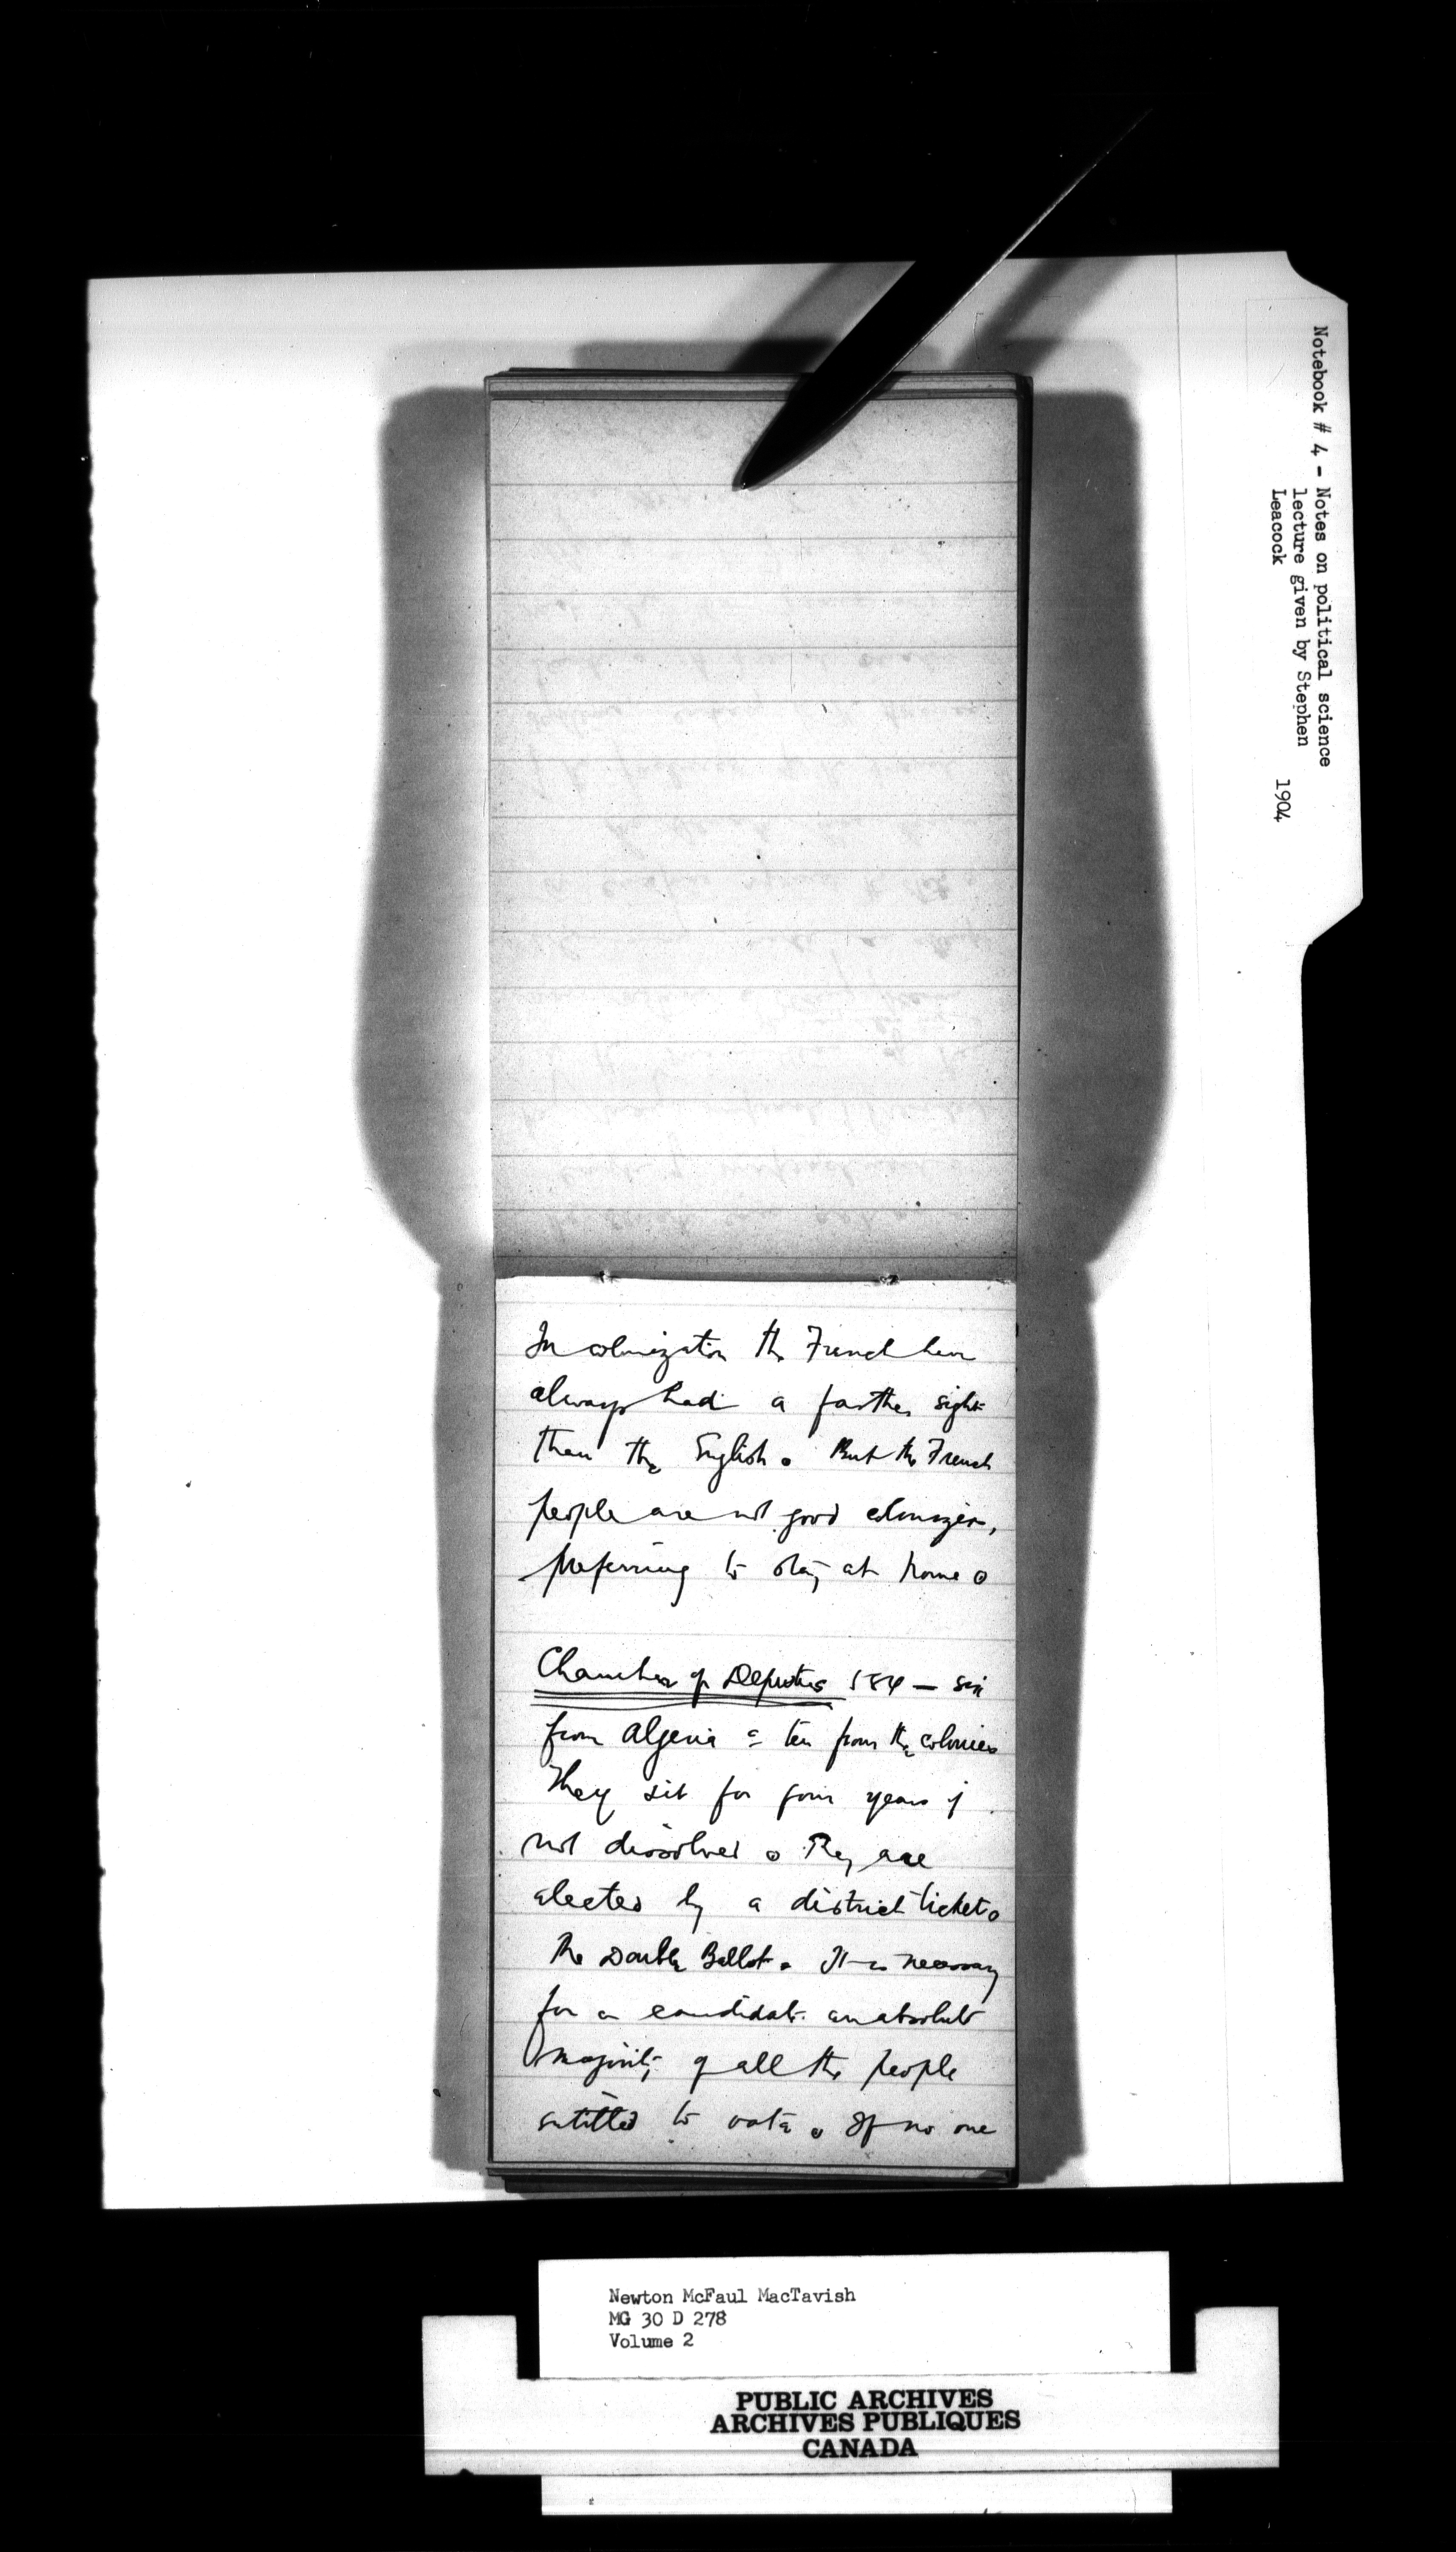 Notebook # 4 - Notes on political science
lecture given by Stephen
Leacock 1904
In colonization the French have
always had a farther sight
than the English. But the French
people are not good colonizers,
preferring to stay at home.
Chamber of Deputies 584 — six
from Algeria & ten from the colonies
They sit for four years if
not dissolved. They are
elected by a district ticket.
The Double Ballot. It is necessary
for a candidate an absolute
majority of all the people
entitled to vote. If no one
Newton McFaul MacTavish
MG 30 D 278
Volume 2
PUBLIC ARCHIVES
ARCHIVES PUBLIQUES
CANADA